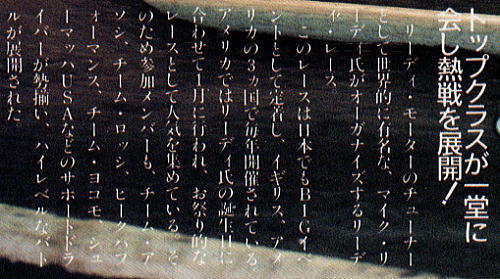 トップクラスが一堂に
会し熱戦を展開！
リーディ・モーターのチューナー
として世界的に有名な、マイク・リ
ーディ氏がオーガナイズするリーデ
ィ・レース。
このレースは日本でもBIGイベ
ントとして定着し、イギリス、アメ
リカの3カ国で毎年開催されている。
アメリカではリーディ氏の誕生日に
合わせて1月に行われ、お祭り的な
レースとして人気を集めている。そ
のため参加メンバーも、チーム・ア
ソシ、チーム・ロッシ、ピークパフ
ォーマンス、チーム・ヨコモ、シュ
ーマッハUSAなどのサポートドラ
イバーが勢揃い、ハイレベルなバト
ルが展開された